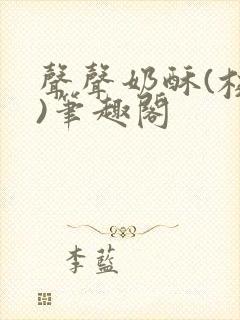 聲聲奶酥(校
)筆趣閣
李藍